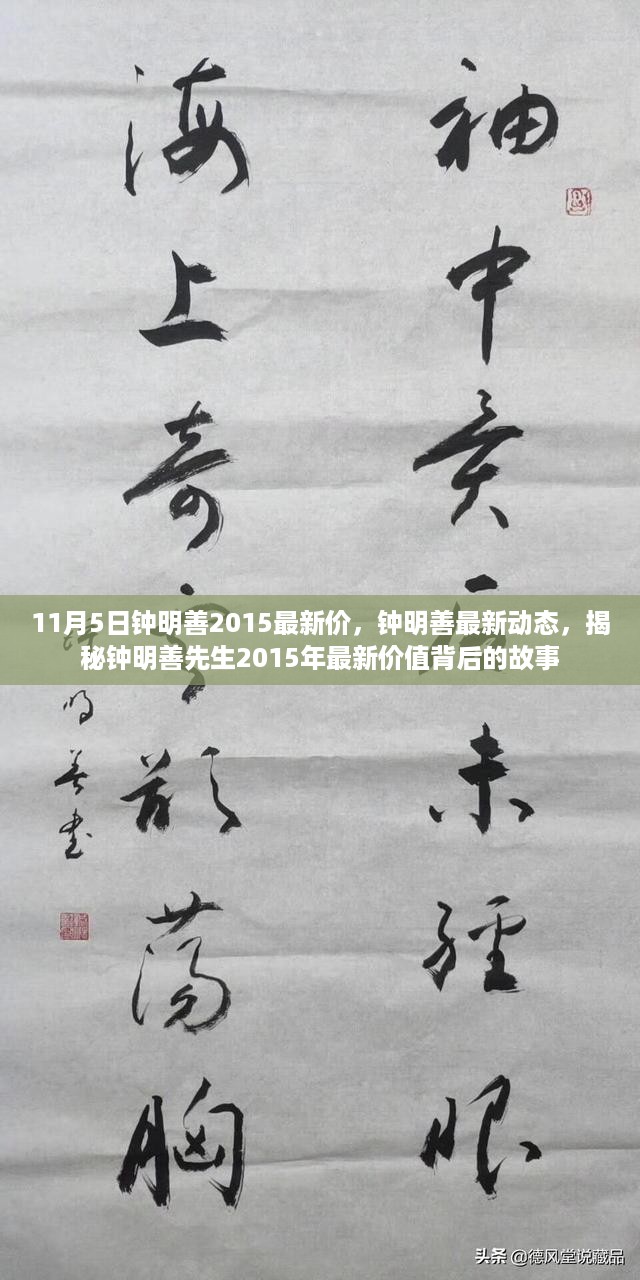 袖中異
未經眼
海上奇
欲蕩胸
明善書
11月5日钟明善2015最新价，钟明善最新动态，揭
秘钟明善先生2015年最新价值背后的故事
头条 @德风堂说藏品